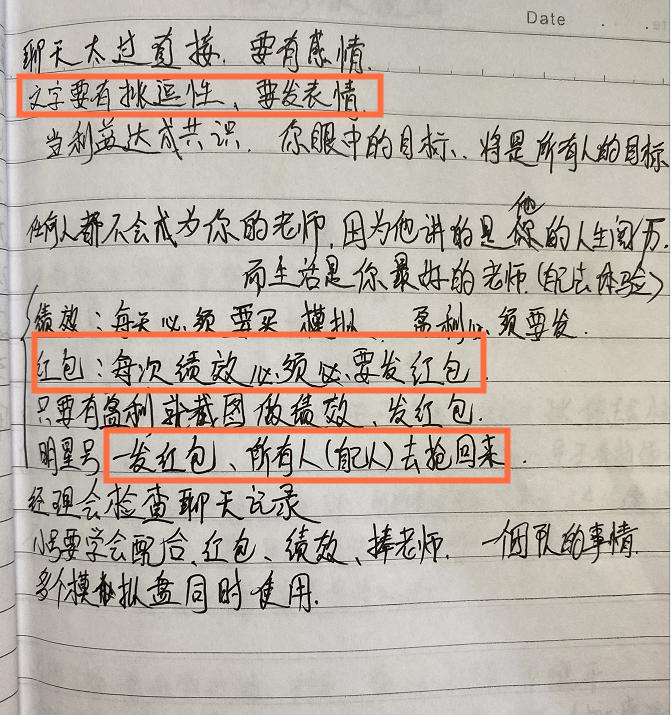 Date
聊天太过直接.要有感情.
文字要有挑逗性、要发表情.
当利益达成共识.你眼中的目标、将是所有人的目标
任何人都不会成为你的老师,因为他讲的是他的人生阅历.
而生活是你最好的老师.(自己去体验)
绩效:每天必须要买模拟.盈利必须要发.
红包:每次绩效必须必要发红包
只要有盈利就截图做绩效、发红包.
明星号一发红包、所有人(自己人)去抢回来.
经理会检查聊天记录
小号要学会配合、红包、绩效、捧老师.一个团队的事情.
多个模拟盘同时使用.